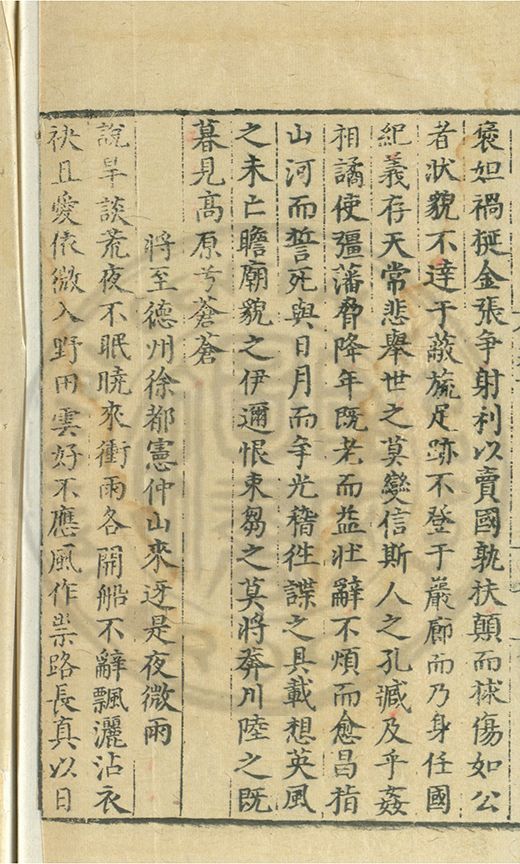 褒妲禍梃金張争射利以賣國孰扶顛而捄傷如公
者状貌不逹于蔽旒足跡不登于巖廊而乃身任國
紀義存天常悲舉世之莫變信斯人之孔臧及乎姦
相譎使彊藩脅降年既老而益壮辭不煩而愈昌指
山河而誓死與日月而争光稽徃諜之具載想英風
之未亡瞻廟貌之伊邇恨束芻之莫將莽川陸之既
暮見高原兮蒼蒼
將至德州徐都憲仲山來迓是夜微雨
說旱談荒夜不眠曉來衝雨各開船不辭飄灑沾衣
袂且愛依微入野田雲好不應風作祟路長真以日